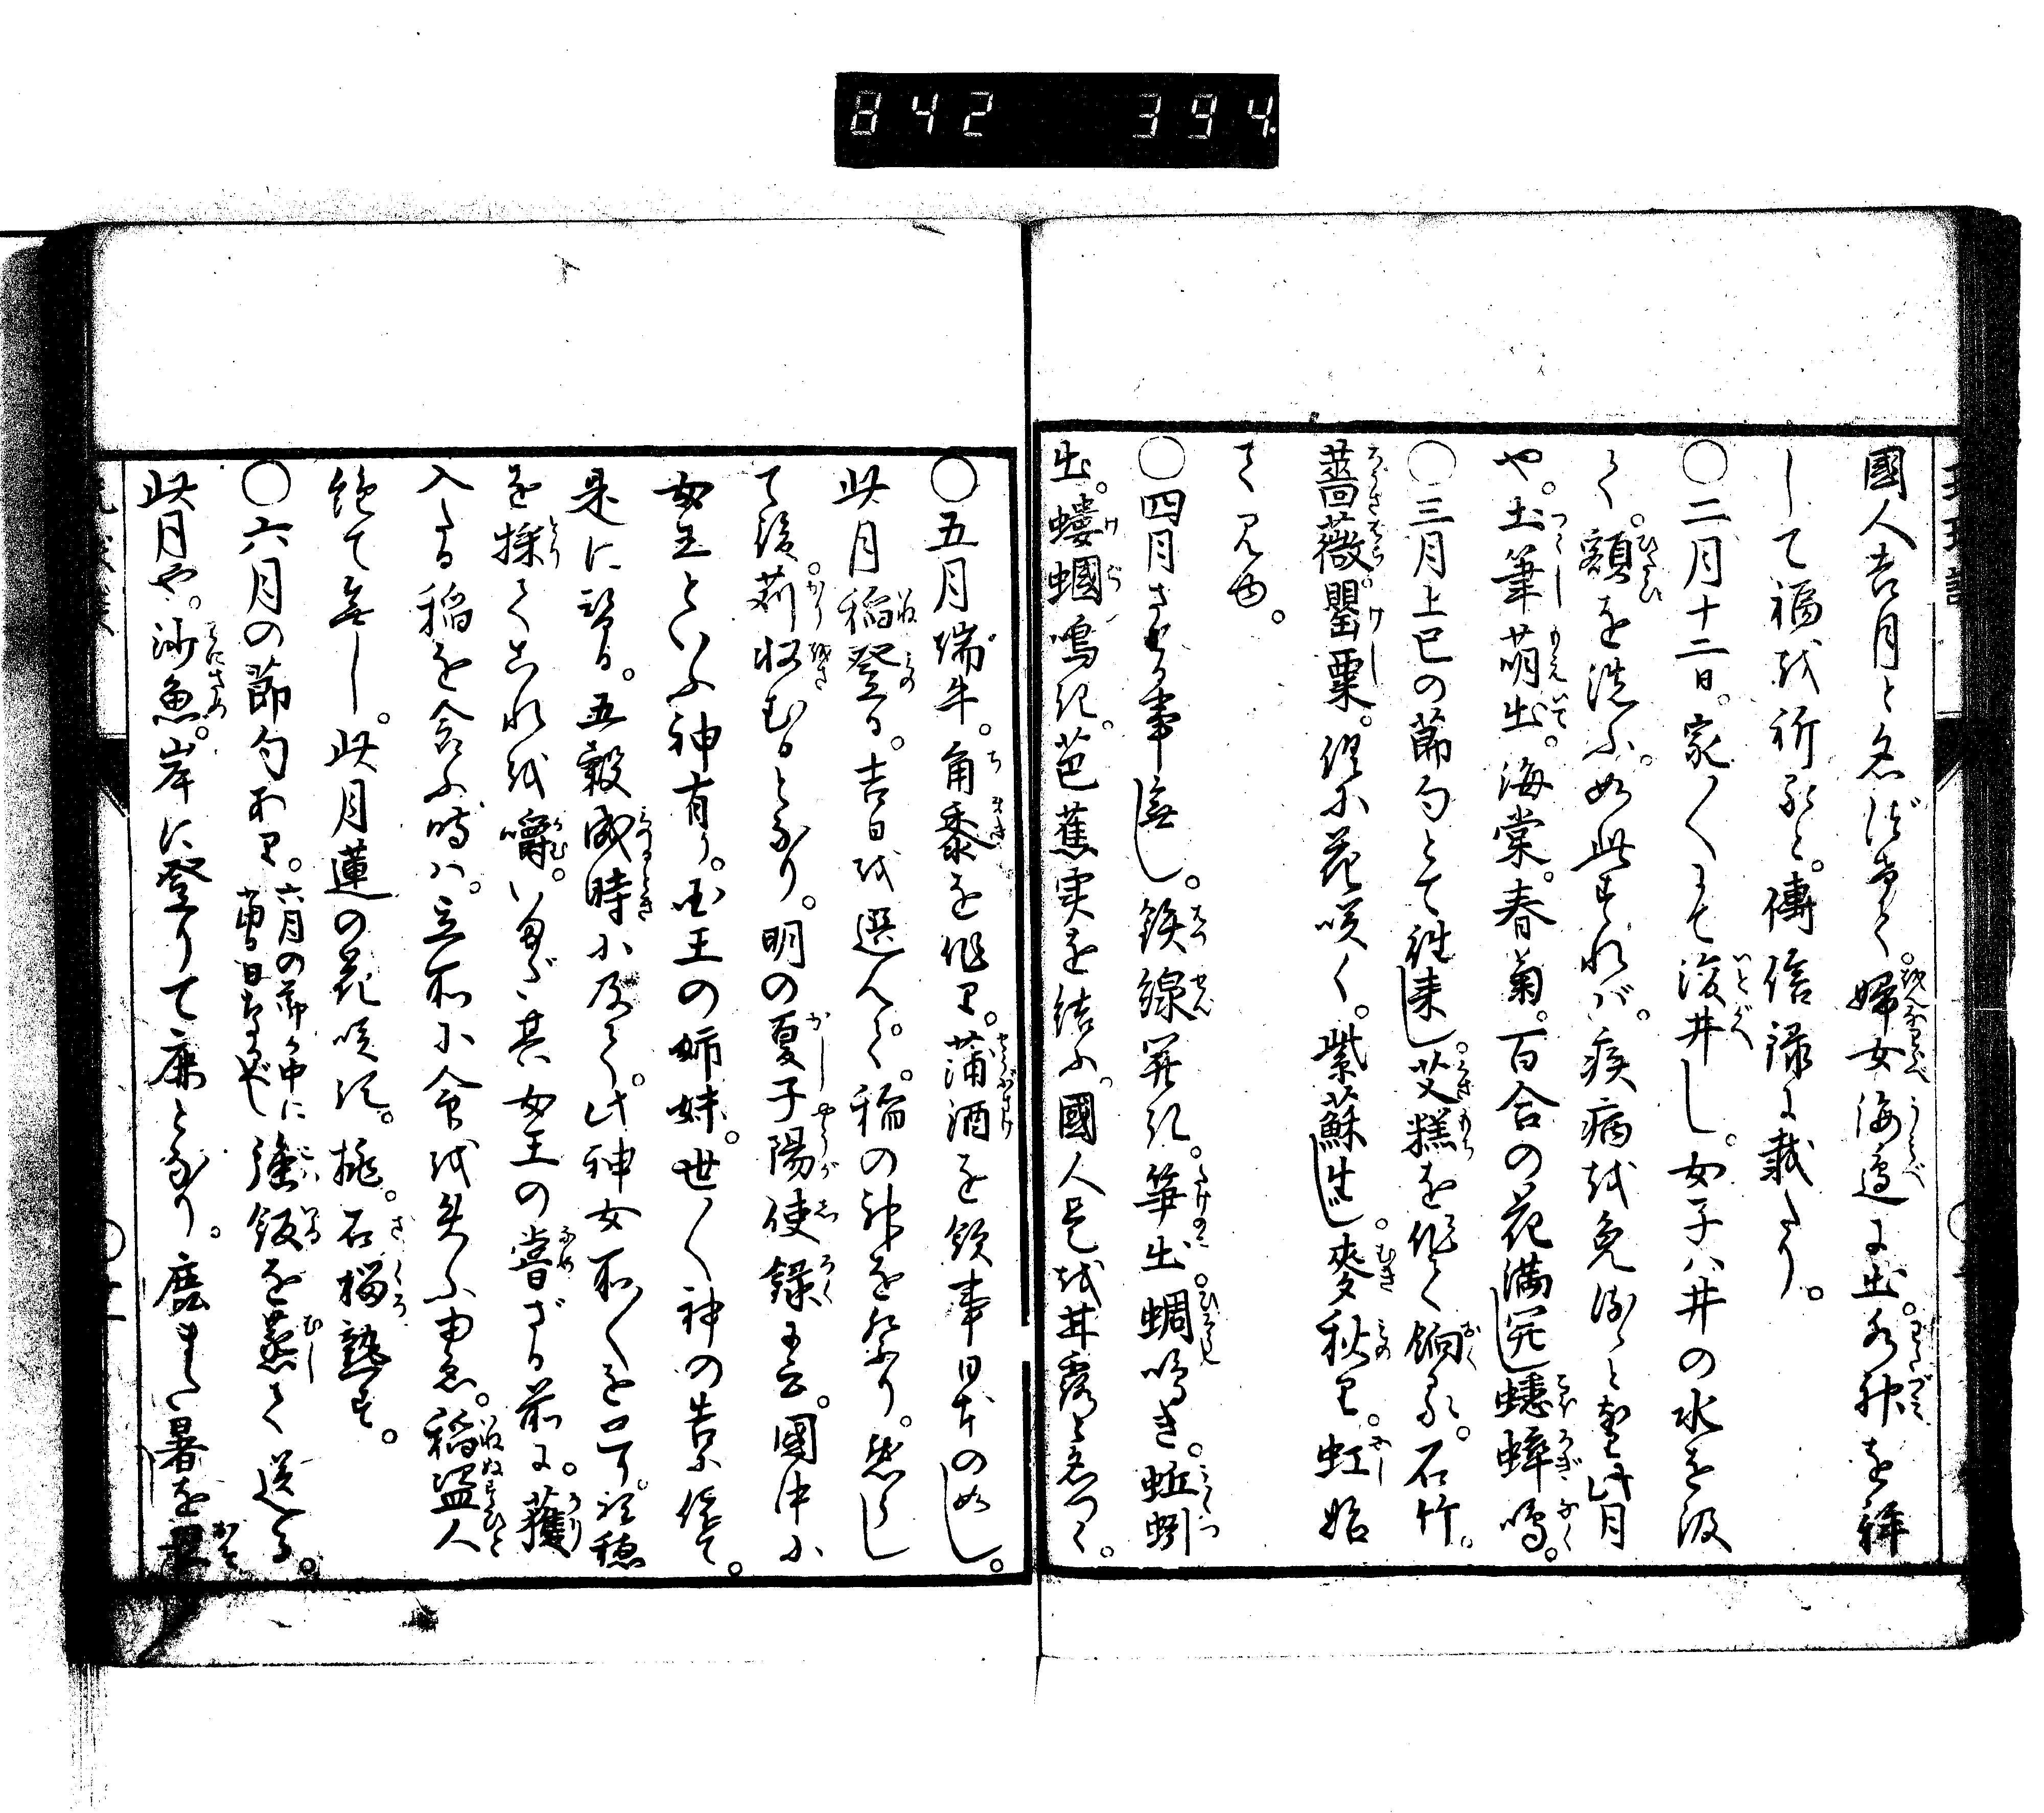 842 394.
國人吉月と名づけて。婦女海邉に出。水神を拜
して福を祈ると。傳信録に載たり。
〇二月十二日。家〱にて浚井し。女子ハ井の水を汲
て。額を洗ふ。如此すれバ。疾病を免ると。此月
や。土筆萌出。海棠。春菊。百合の花満開し蟋蟀鳴。
〇三月上巳の節句とて往来し。艾糕を作て餉る。石竹。
薔薇罌粟。倶に花咲く。紫蘇生じ。麥秋り。虹始
て見ゆ。
〇四月させる事無し。鉄線開き。筍出。蜩鳴き。蚯蚓
出。螻蟈鳴き。芭蕉実を結ふ。國人是を甘露と名つく。
〇五月端午。角黍を作り。蒲酒を飲事日本の如し。
此月稲登る。吉日を選んで。稲の神を祭り。然して
て後。苅收むるとなり。明の夏子陽使録に云。國中に
女王といふ神有り。国王の姉妹。世〱神の告に依て。
是に替る。五穀成時に及て。此神女所〱を巡り。穂
を採てこれを嚼。いまだ其女王の嘗ざる前に。穫
入たる稲を食ふ時ハ。立所に命を失ふ由ゑ。稲盗人
絶て無し。此月蓮の花咲き。桃。石榴熟す。
〇六月の節句あり。六月の節の中に吉日あるべし強飯を蒸て送る。
此月や。沙魚。岸に登りて鹿となり。鹿また暑を